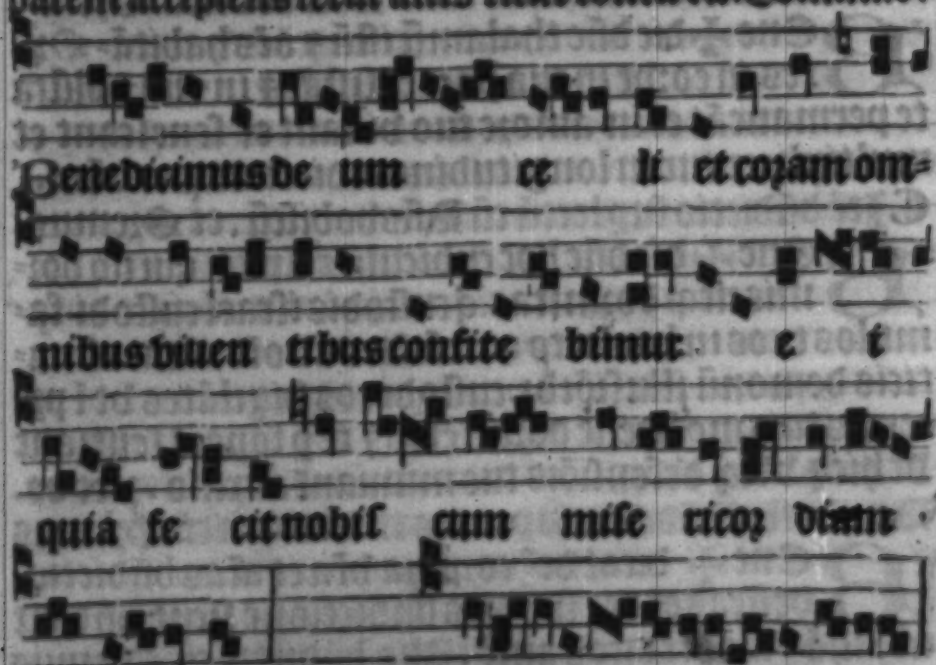 Benedicimus de um ce li et coꝛam om⸗
nibus viuen tibus confite bimur e i
quia fe cit nobiſ cum miſe ricoꝛ diam